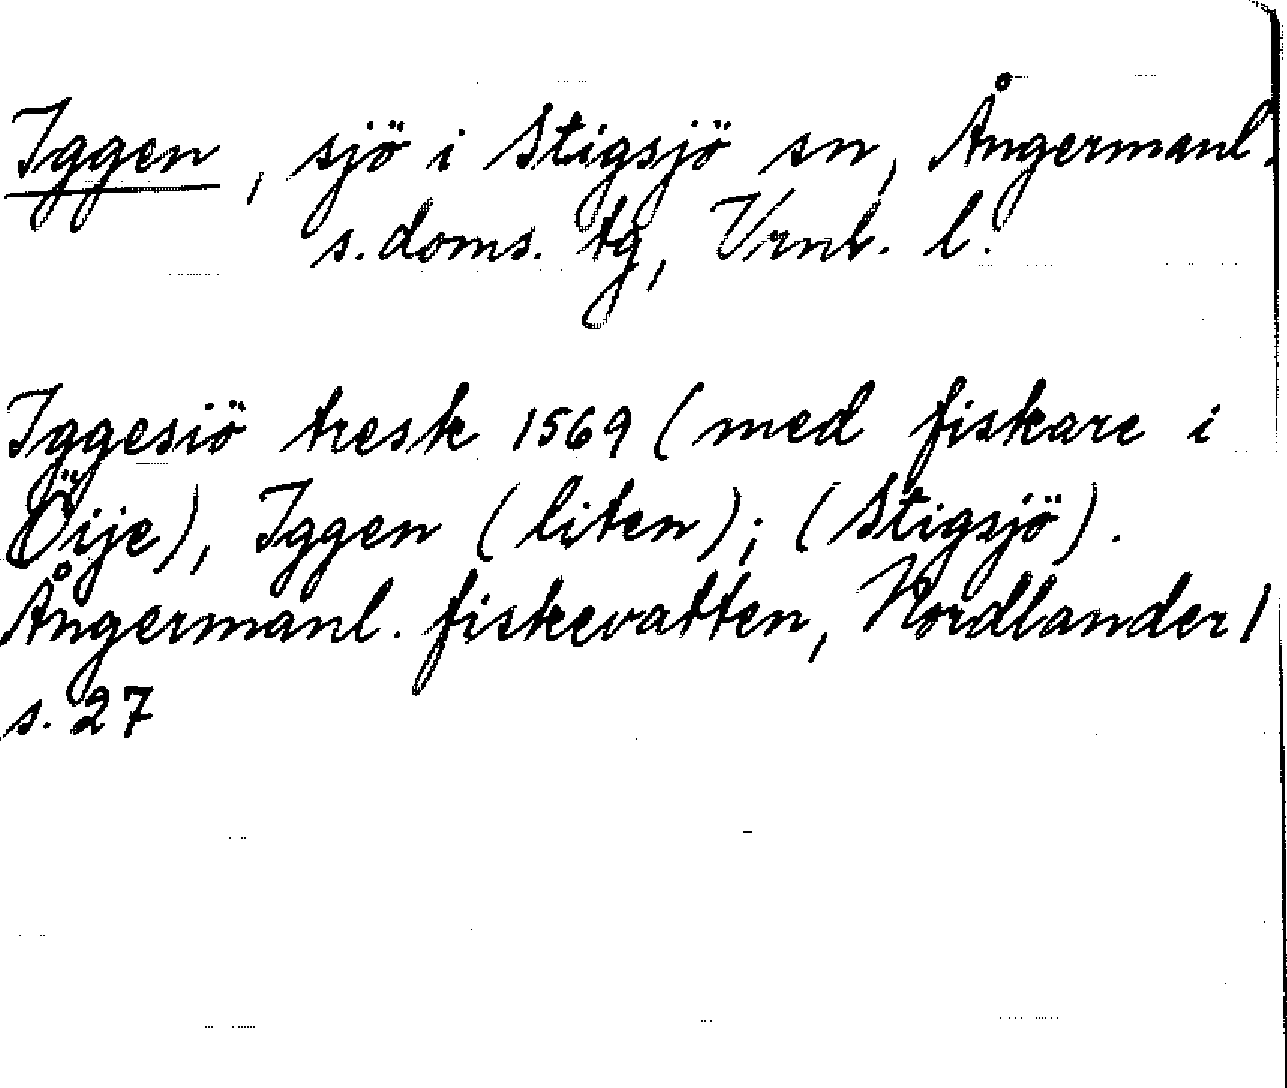 Iggen, sjö i Stigsjö sn, Ångermanl.
s. doms. tg, Vrnl. l.
Iggesiö tresk 1569 (med fiskare i
Öije), Iggen (liten); (Stigsjö).
Ångermanl. fiskevatten, Nordlander 1
s. 27